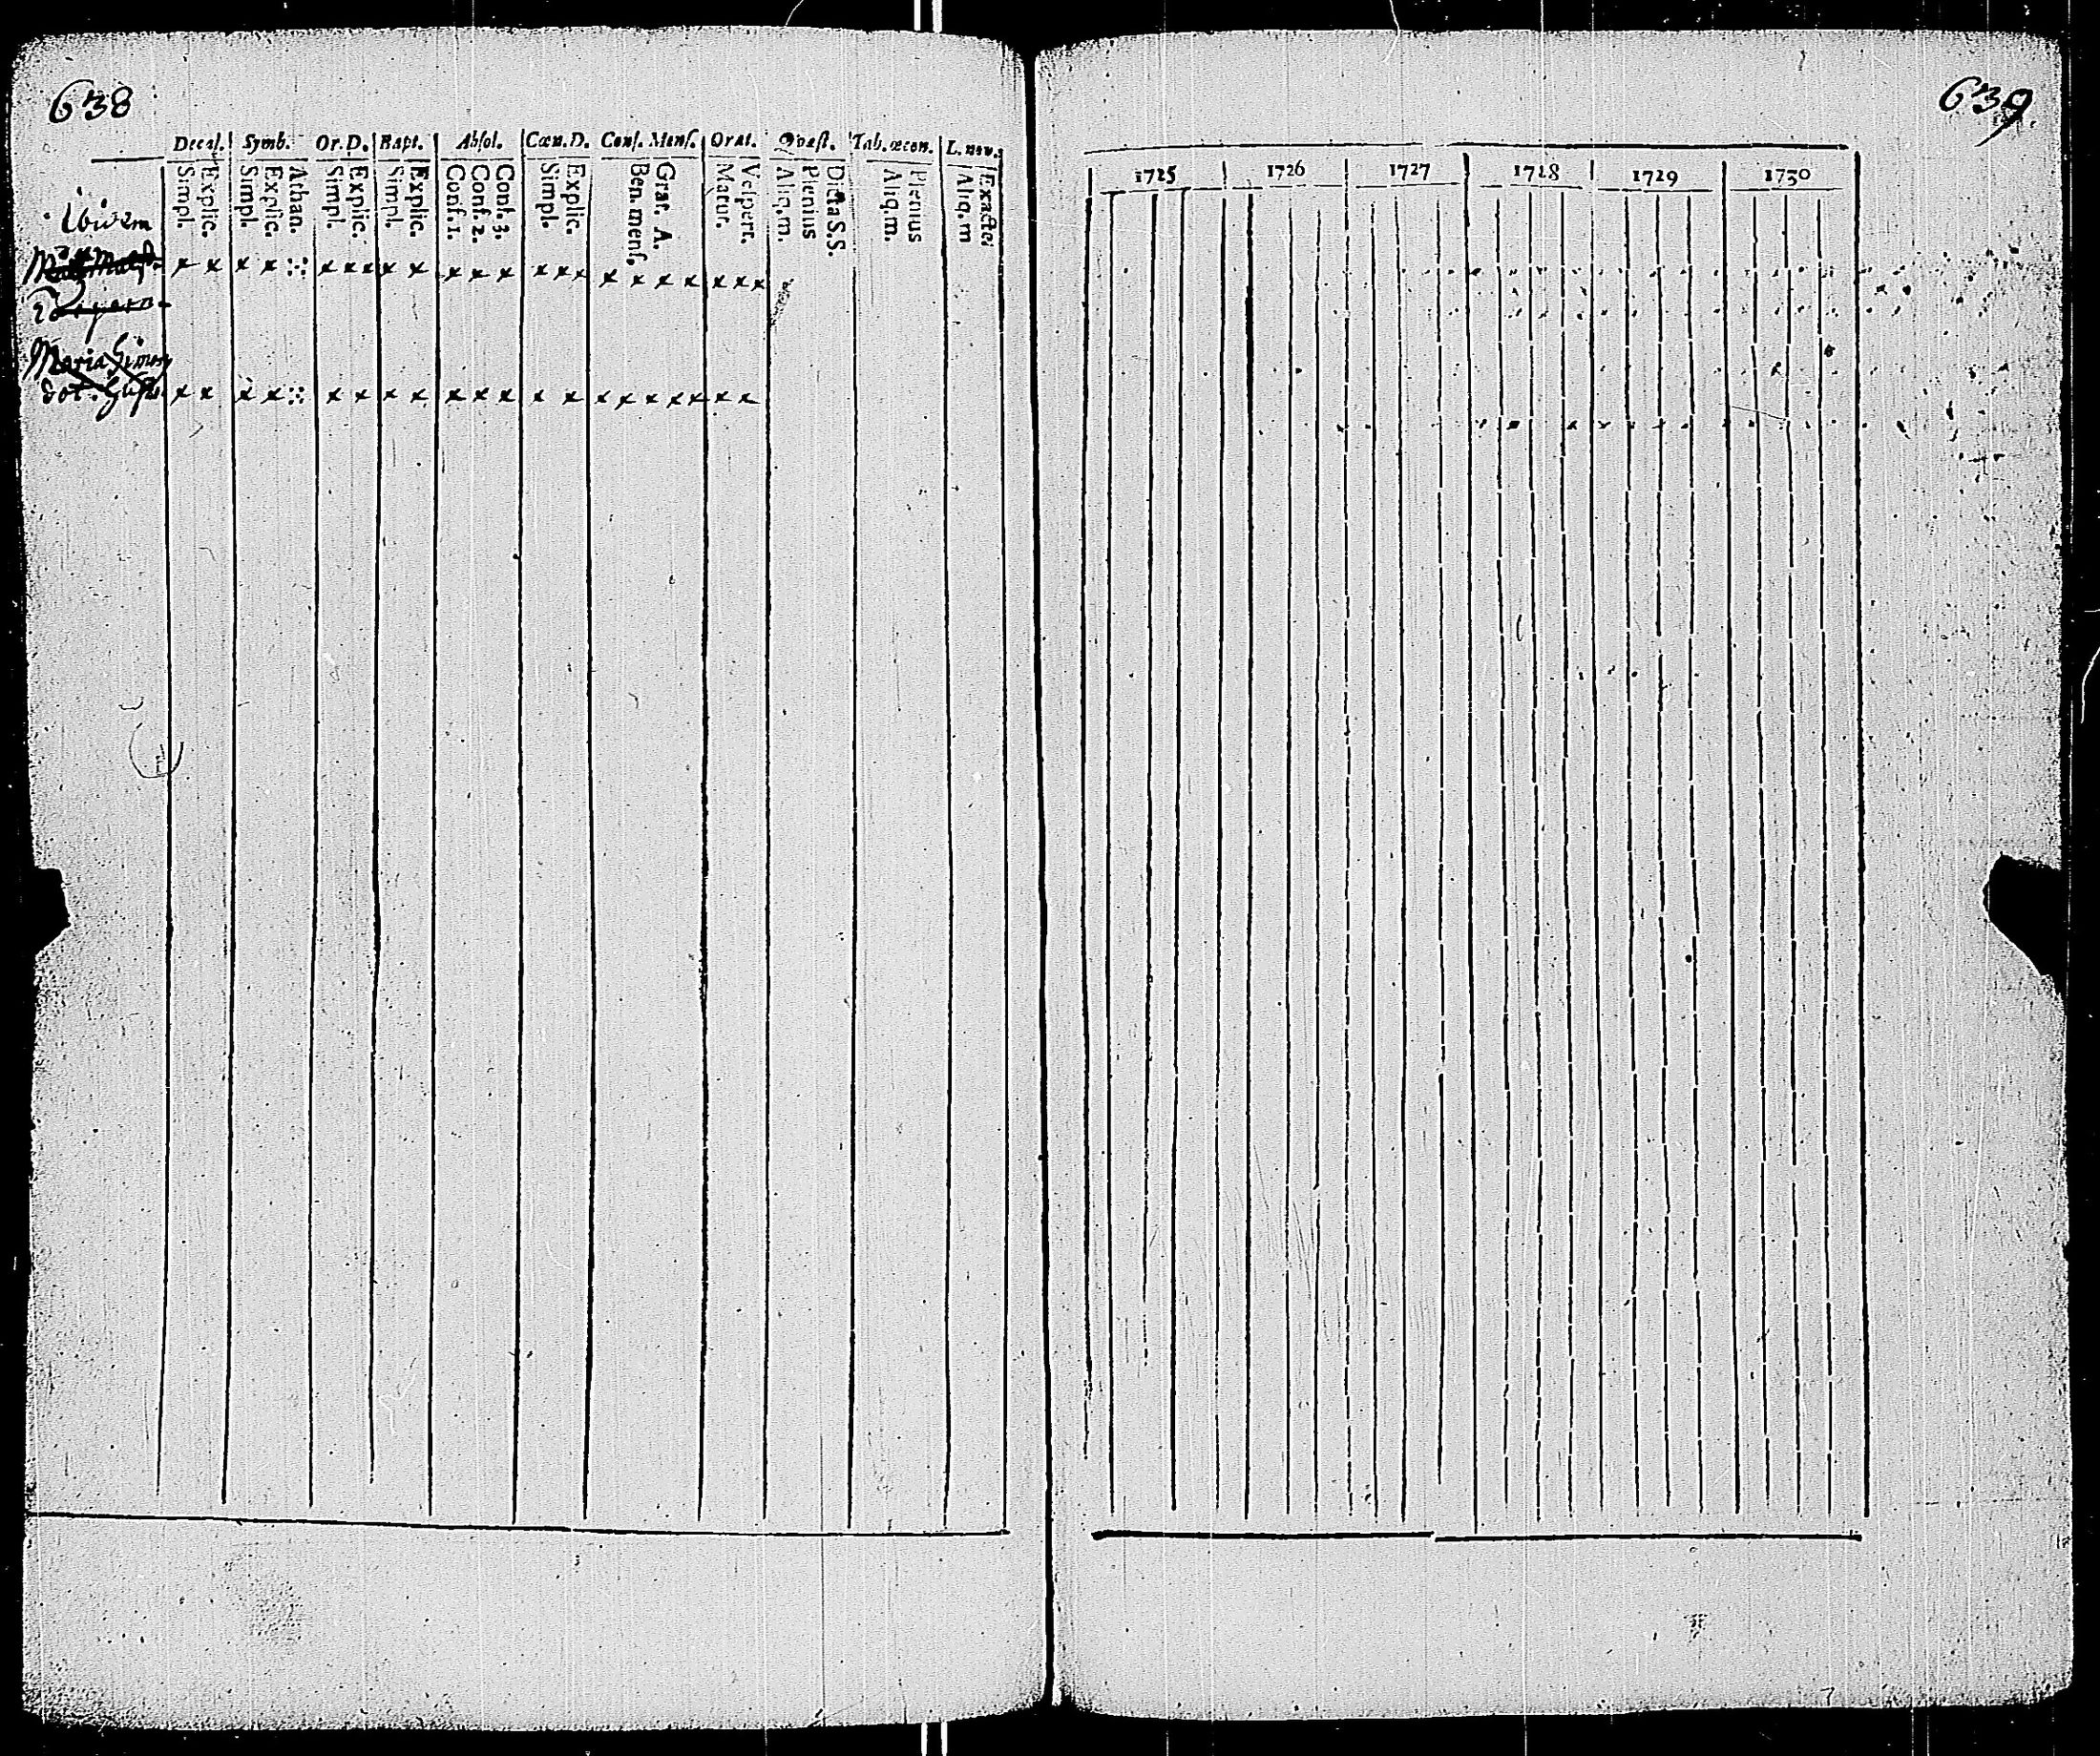 638
Decal. Symb. Or. D. Bapt. Absol. Cœn. D. Conf. Mens. Orat. Quæst. Tab. œcon. L. nov.
Simpl. Explic. Simpl. Explic. Athan. Simpl. Explic. Simpl. Explic. Conf. 1. Conf. 2. Conf. 3. Simpl. Explic. Ben. mens. Grat. A. Matut. Vespert. Aliq. m. Plenius Dicta S. S. Aliq. m. Plenius Aliq. m Exacte
Ibidem
x x x x x x x x x x x x x x x x x x x x x
Maria Simons
dot.
x x x x x x x x x x x x x x x x x x x x
639
1725 1726 1727 1728 1729 1730